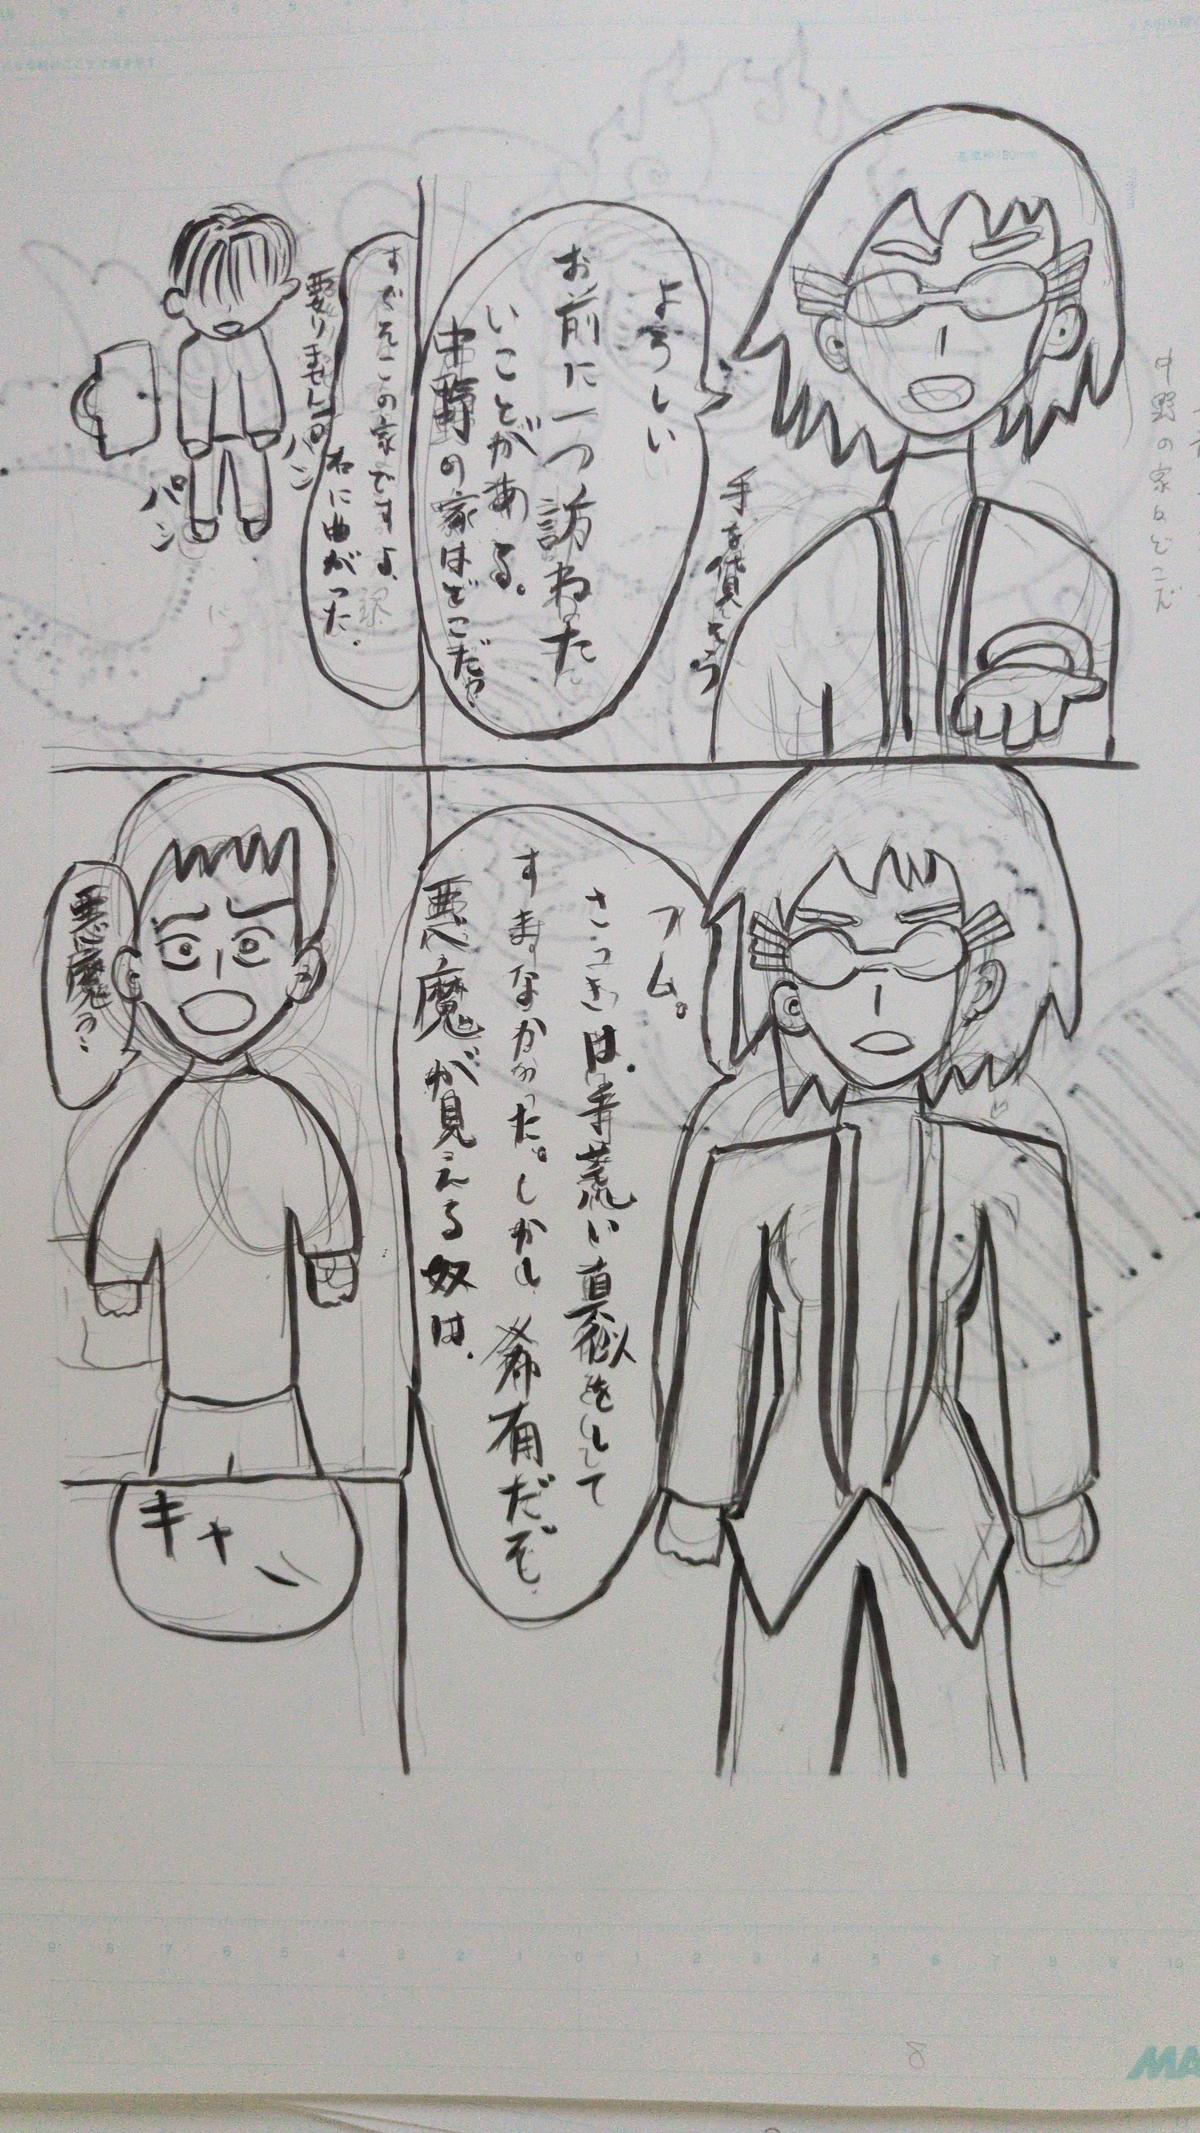 中野の家はどこだ
よろしい
お前に一つ訪ねた
いことがある。
中野の家はどこだ?
手を貸そう
すぐそこの家ですよ、
右に曲がった.
要りません
パン
パン
フム。
さっきは手荒い真似をして
すまなかった。しかし希有だぞ
悪魔が見える奴は.
悪魔?
キャー
8
MA